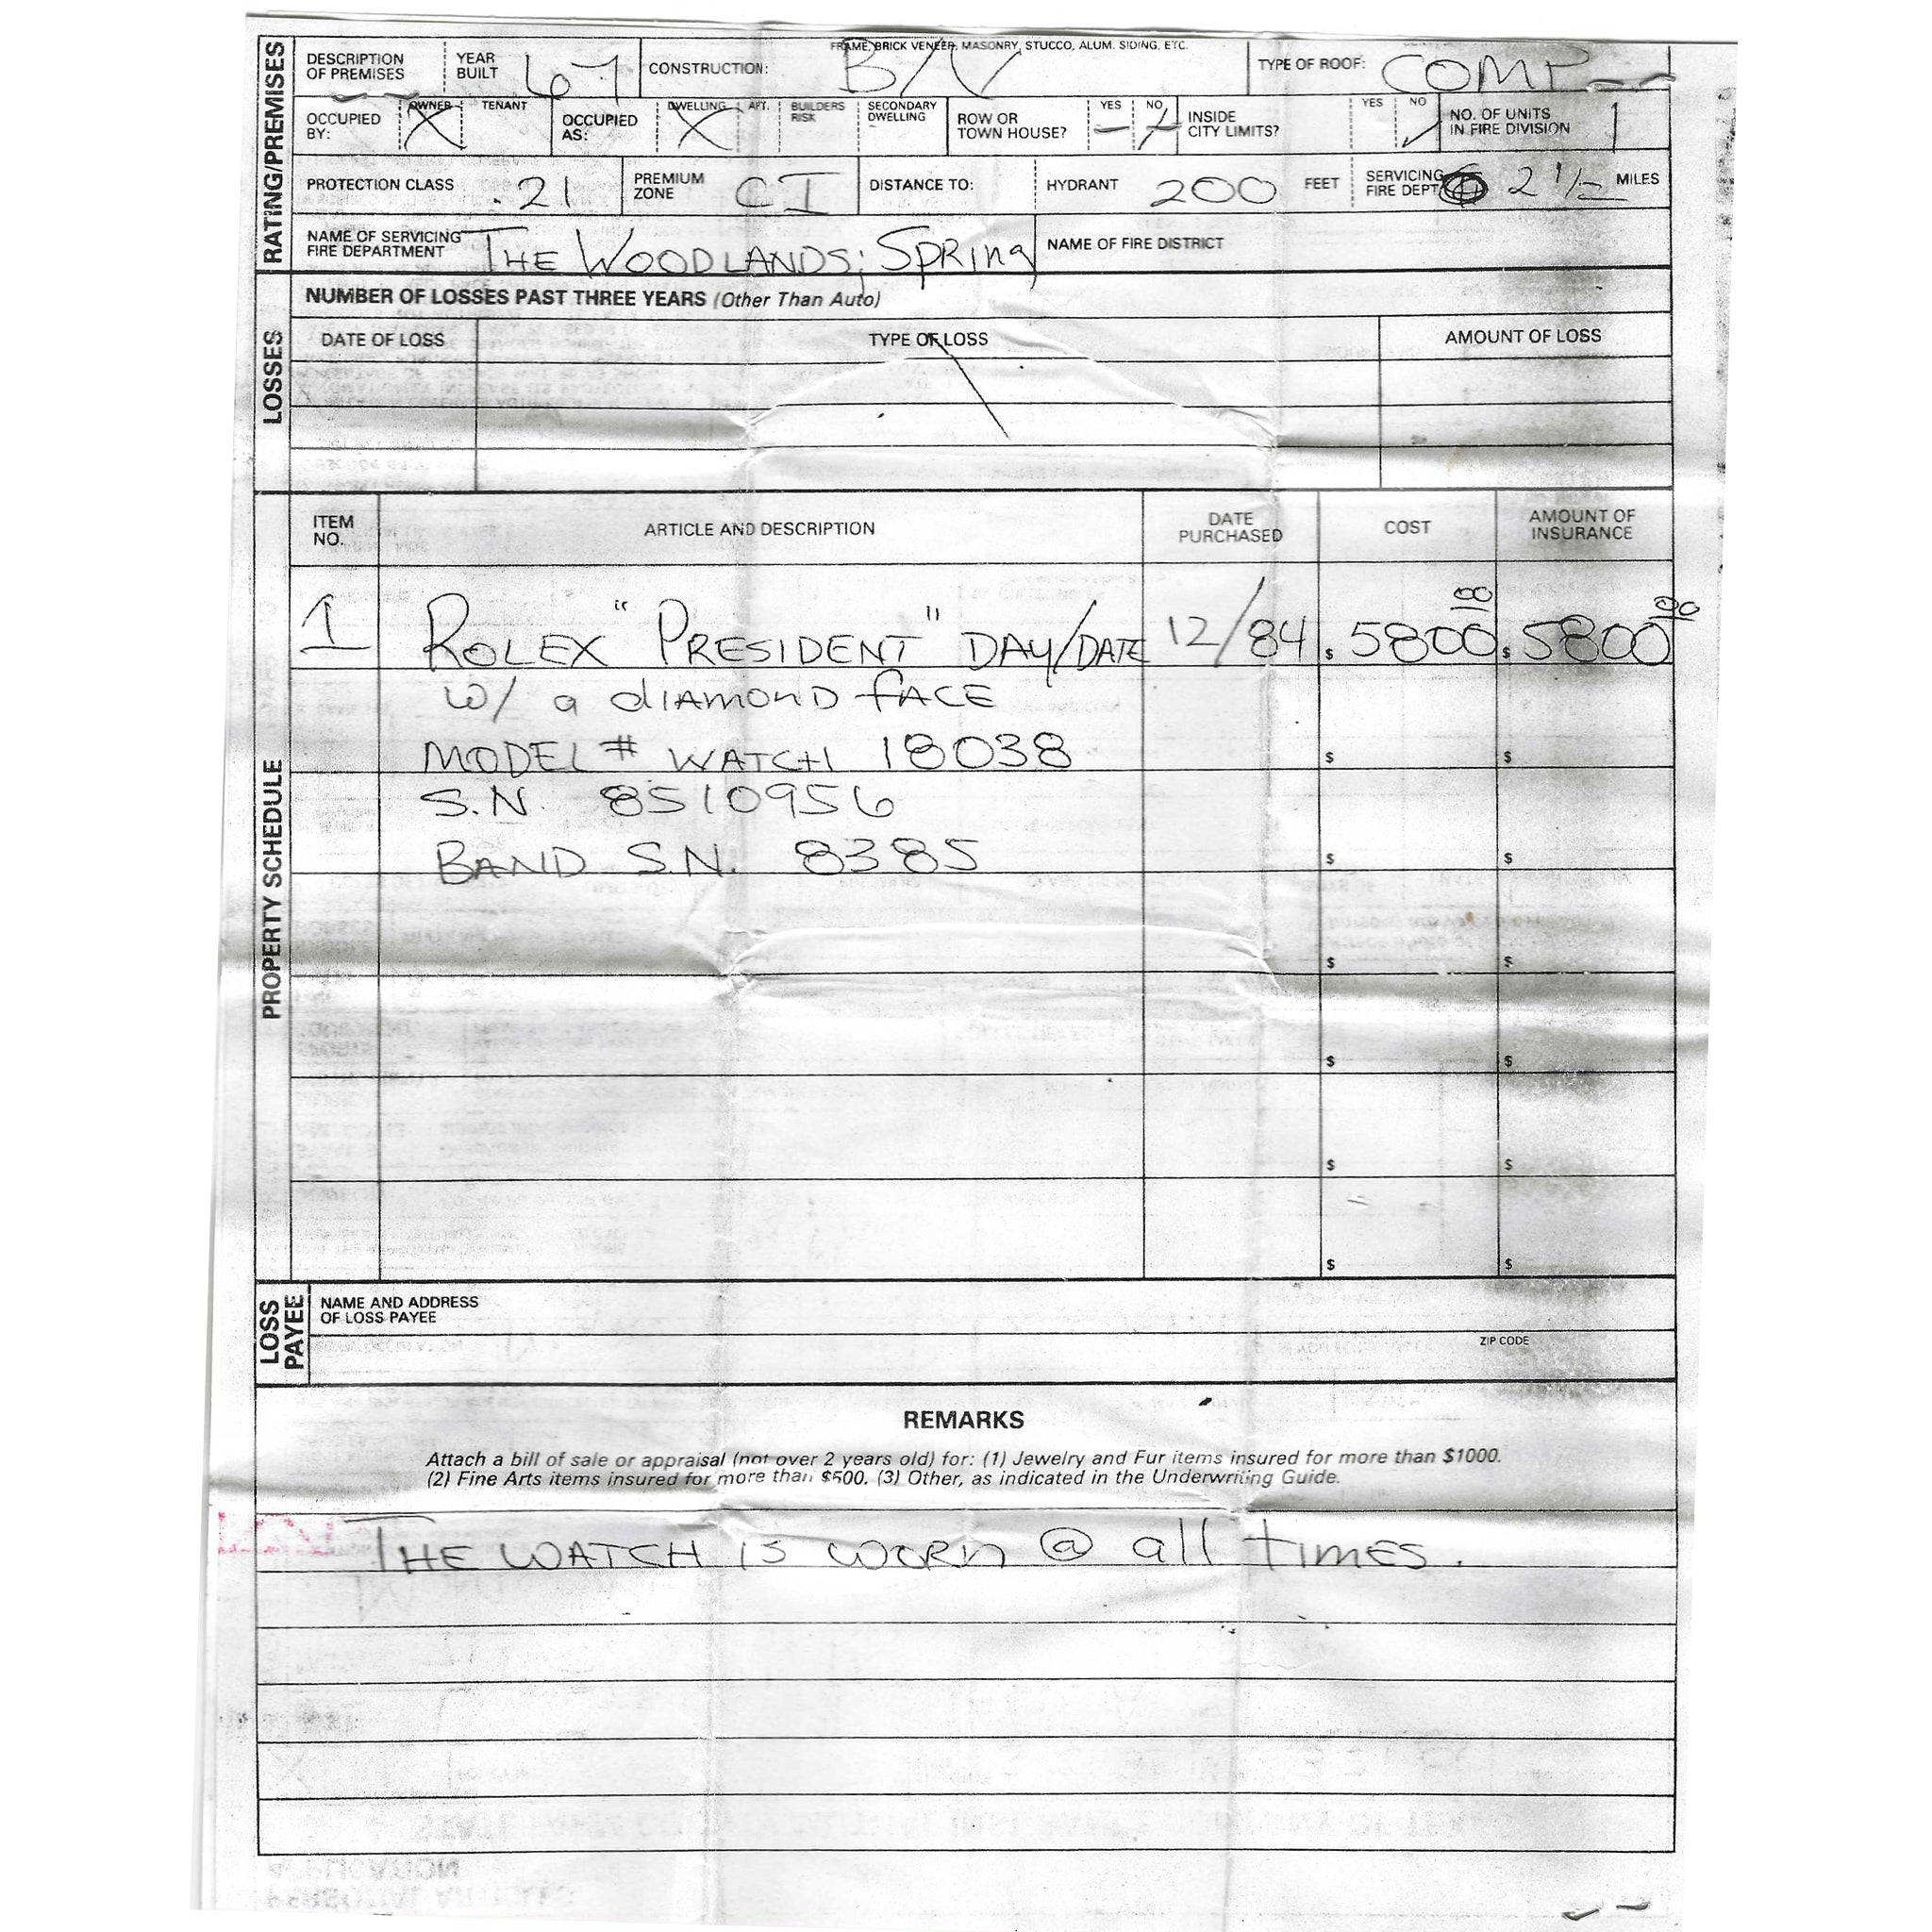 RATING/PREMISES
DESCRIPTION OF PREMISES YEAR BUILT 67 CONSTRUCTION: FRAME, BRICK VENEER, MASONRY, STUCCO, ALUM. SIDING, ETC. B/V TYPE OF ROOF: COMP
OCCUPIED BY: OWNER X TENANT OCCUPIED AS: DWELLING X APT. BUILDERS RISK SECONDARY DWELLING ROW OR TOWN HOUSE? YES NO INSIDE CITY LIMITS? YES NO ✓ NO. OF UNITS IN FIRE DIVISION 1
PROTECTION CLASS .21 PREMIUM ZONE CI DISTANCE TO: HYDRANT 200 FEET SERVICING FIRE DEPT. 2 1/2 MILES
NAME OF SERVICING FIRE DEPARTMENT THE WOODLANDS; SPRing NAME OF FIRE DISTRICT
LOSSES
NUMBER OF LOSSES PAST THREE YEARS (Other Than Auto)
DATE OF LOSS TYPE OF LOSS AMOUNT OF LOSS
PROPERTY SCHEDULE
ITEM NO. ARTICLE AND DESCRIPTION DATE PURCHASED COST AMOUNT OF INSURANCE
1 ROLEX "PRESIDENT" DAY/DATE 12/84 $ 5800 00 $ 5800 00
w/ a diAMOND fACE
MODEL # WATCH 18038 $ $
S.N. 8510956
BAND S.N. 8385 $ $
$ $
$ $
$ $
$ $
LOSS PAYEE
NAME AND ADDRESS OF LOSS PAYEE
ZIP CODE
REMARKS
Attach a bill of sale or appraisal (not over 2 years old) for: (1) Jewelry and Fur items insured for more than $1000.
(2) Fine Arts items insured for more than $500. (3) Other, as indicated in the Underwriting Guide.
THE WATCH is WORn @ all TiMES.